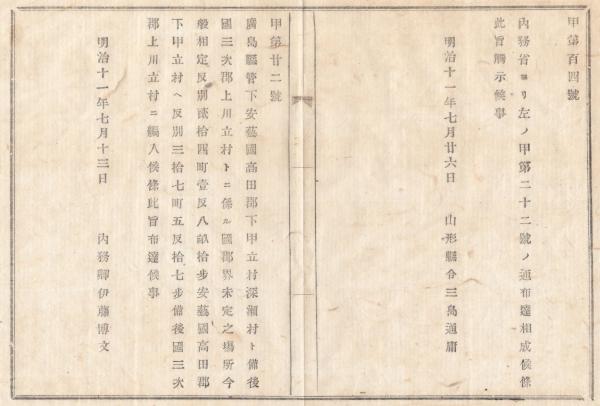 甲第百四號
內務省ヨリ左ノ甲第二十二號ノ通布達相成候條
此旨觸示候事
明治十一年七月廿六日　山形縣令三島通庸
甲第廿二號
廣島縣管下安藝國高田郡下甲立村深瀨村ト備後
國三次郡上川立村トニ係ル國郡界未定之場所今
般相定反別貳拾四町壹反八畝拾步安藝國高田郡
下甲立村ヘ反別三拾七町五反拾七步備後國三次
郡上川立村ニ編入候條此旨布達候事
明治十一年七月十三日　內務卿伊藤博文